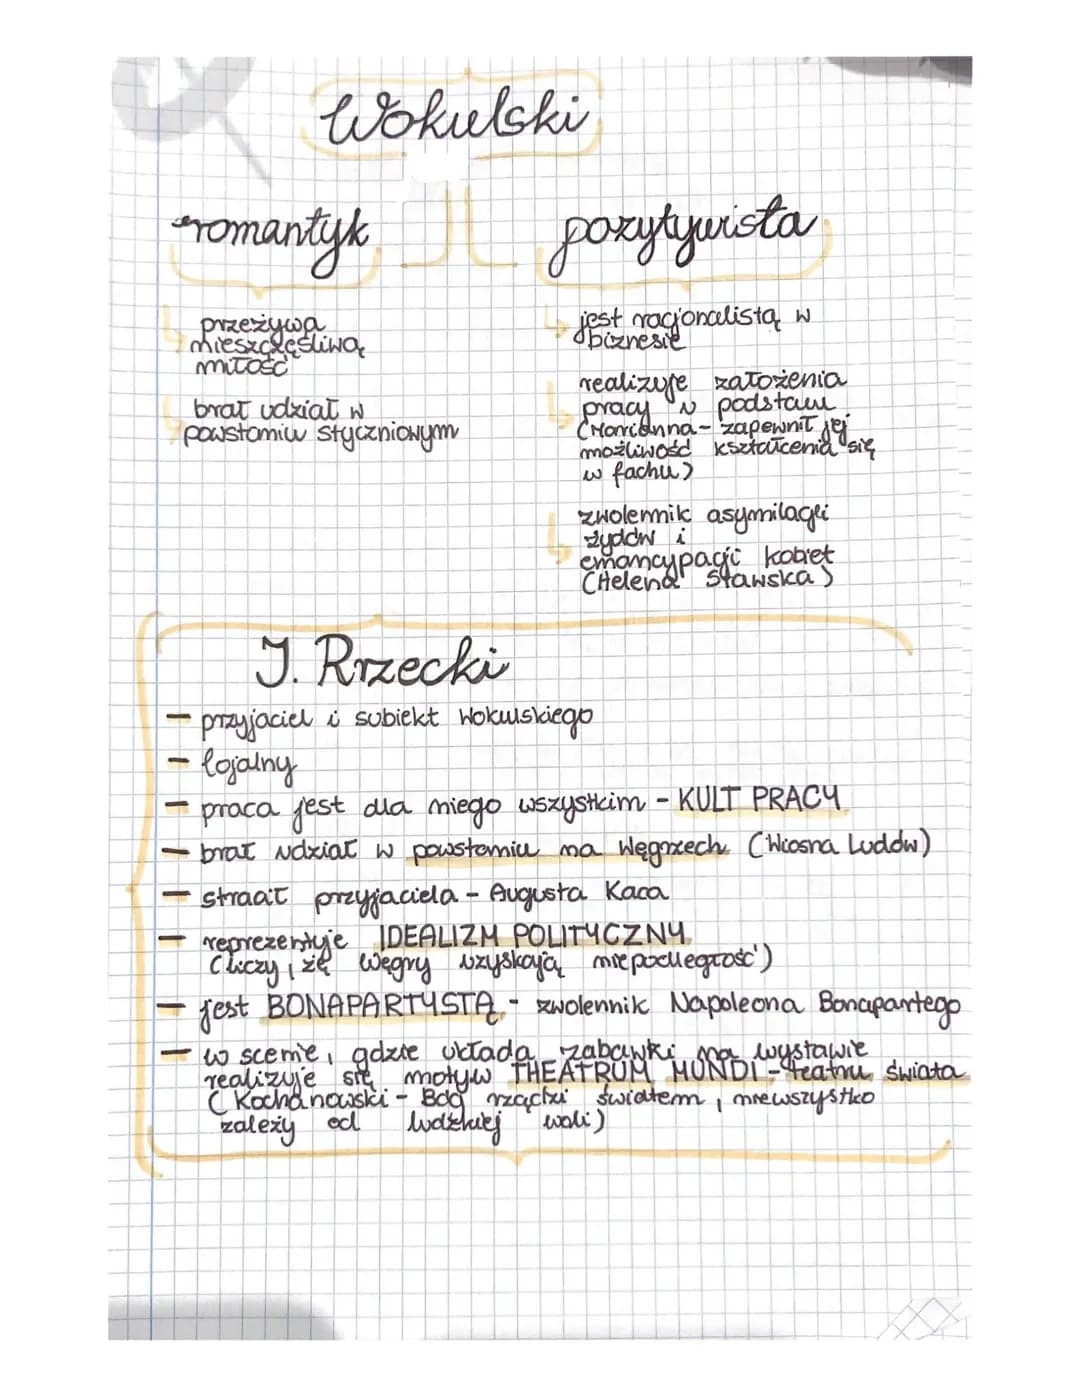 Wokulski
romantyk
pozytywista
przeżywa
nieszczęśliwą
miłość
brał udział w
powstaniu styczniowym
jest racjonalistą w
biznesie
realizuje założenia
pracy u podstaw
(Marianna - zapewnił jej
możliwość kształcenia się
w fachu)
zwolennik asymilacji
żydów i
emancypacji kobiet
(Helena Stawska)
I. Rrzecki
- przyjaciel i subiekt Wokulskiego
- lojalny
- praca jest dla niego wszystkim - KULT PRACY
- brał udział w powstaniu na Węgrzech (Wiosna Ludów)
- stracił przyjaciela - Augusta Kaca
- reprezentuje IDEALIZM POLITYCZNY
(liczy, że Węgry uzyskają niepodległość)
- jest BONAPARTYSTĄ - zwolennik Napoleona Bonapartego
- w scenie, gdzie układa zabawki na wystawie
realizuje się motyw THEATRUM MUNDI - teatru świata
(Kochanowski - Bóg rządzi światem, niewszystko
zależy od ludzkiej woli)